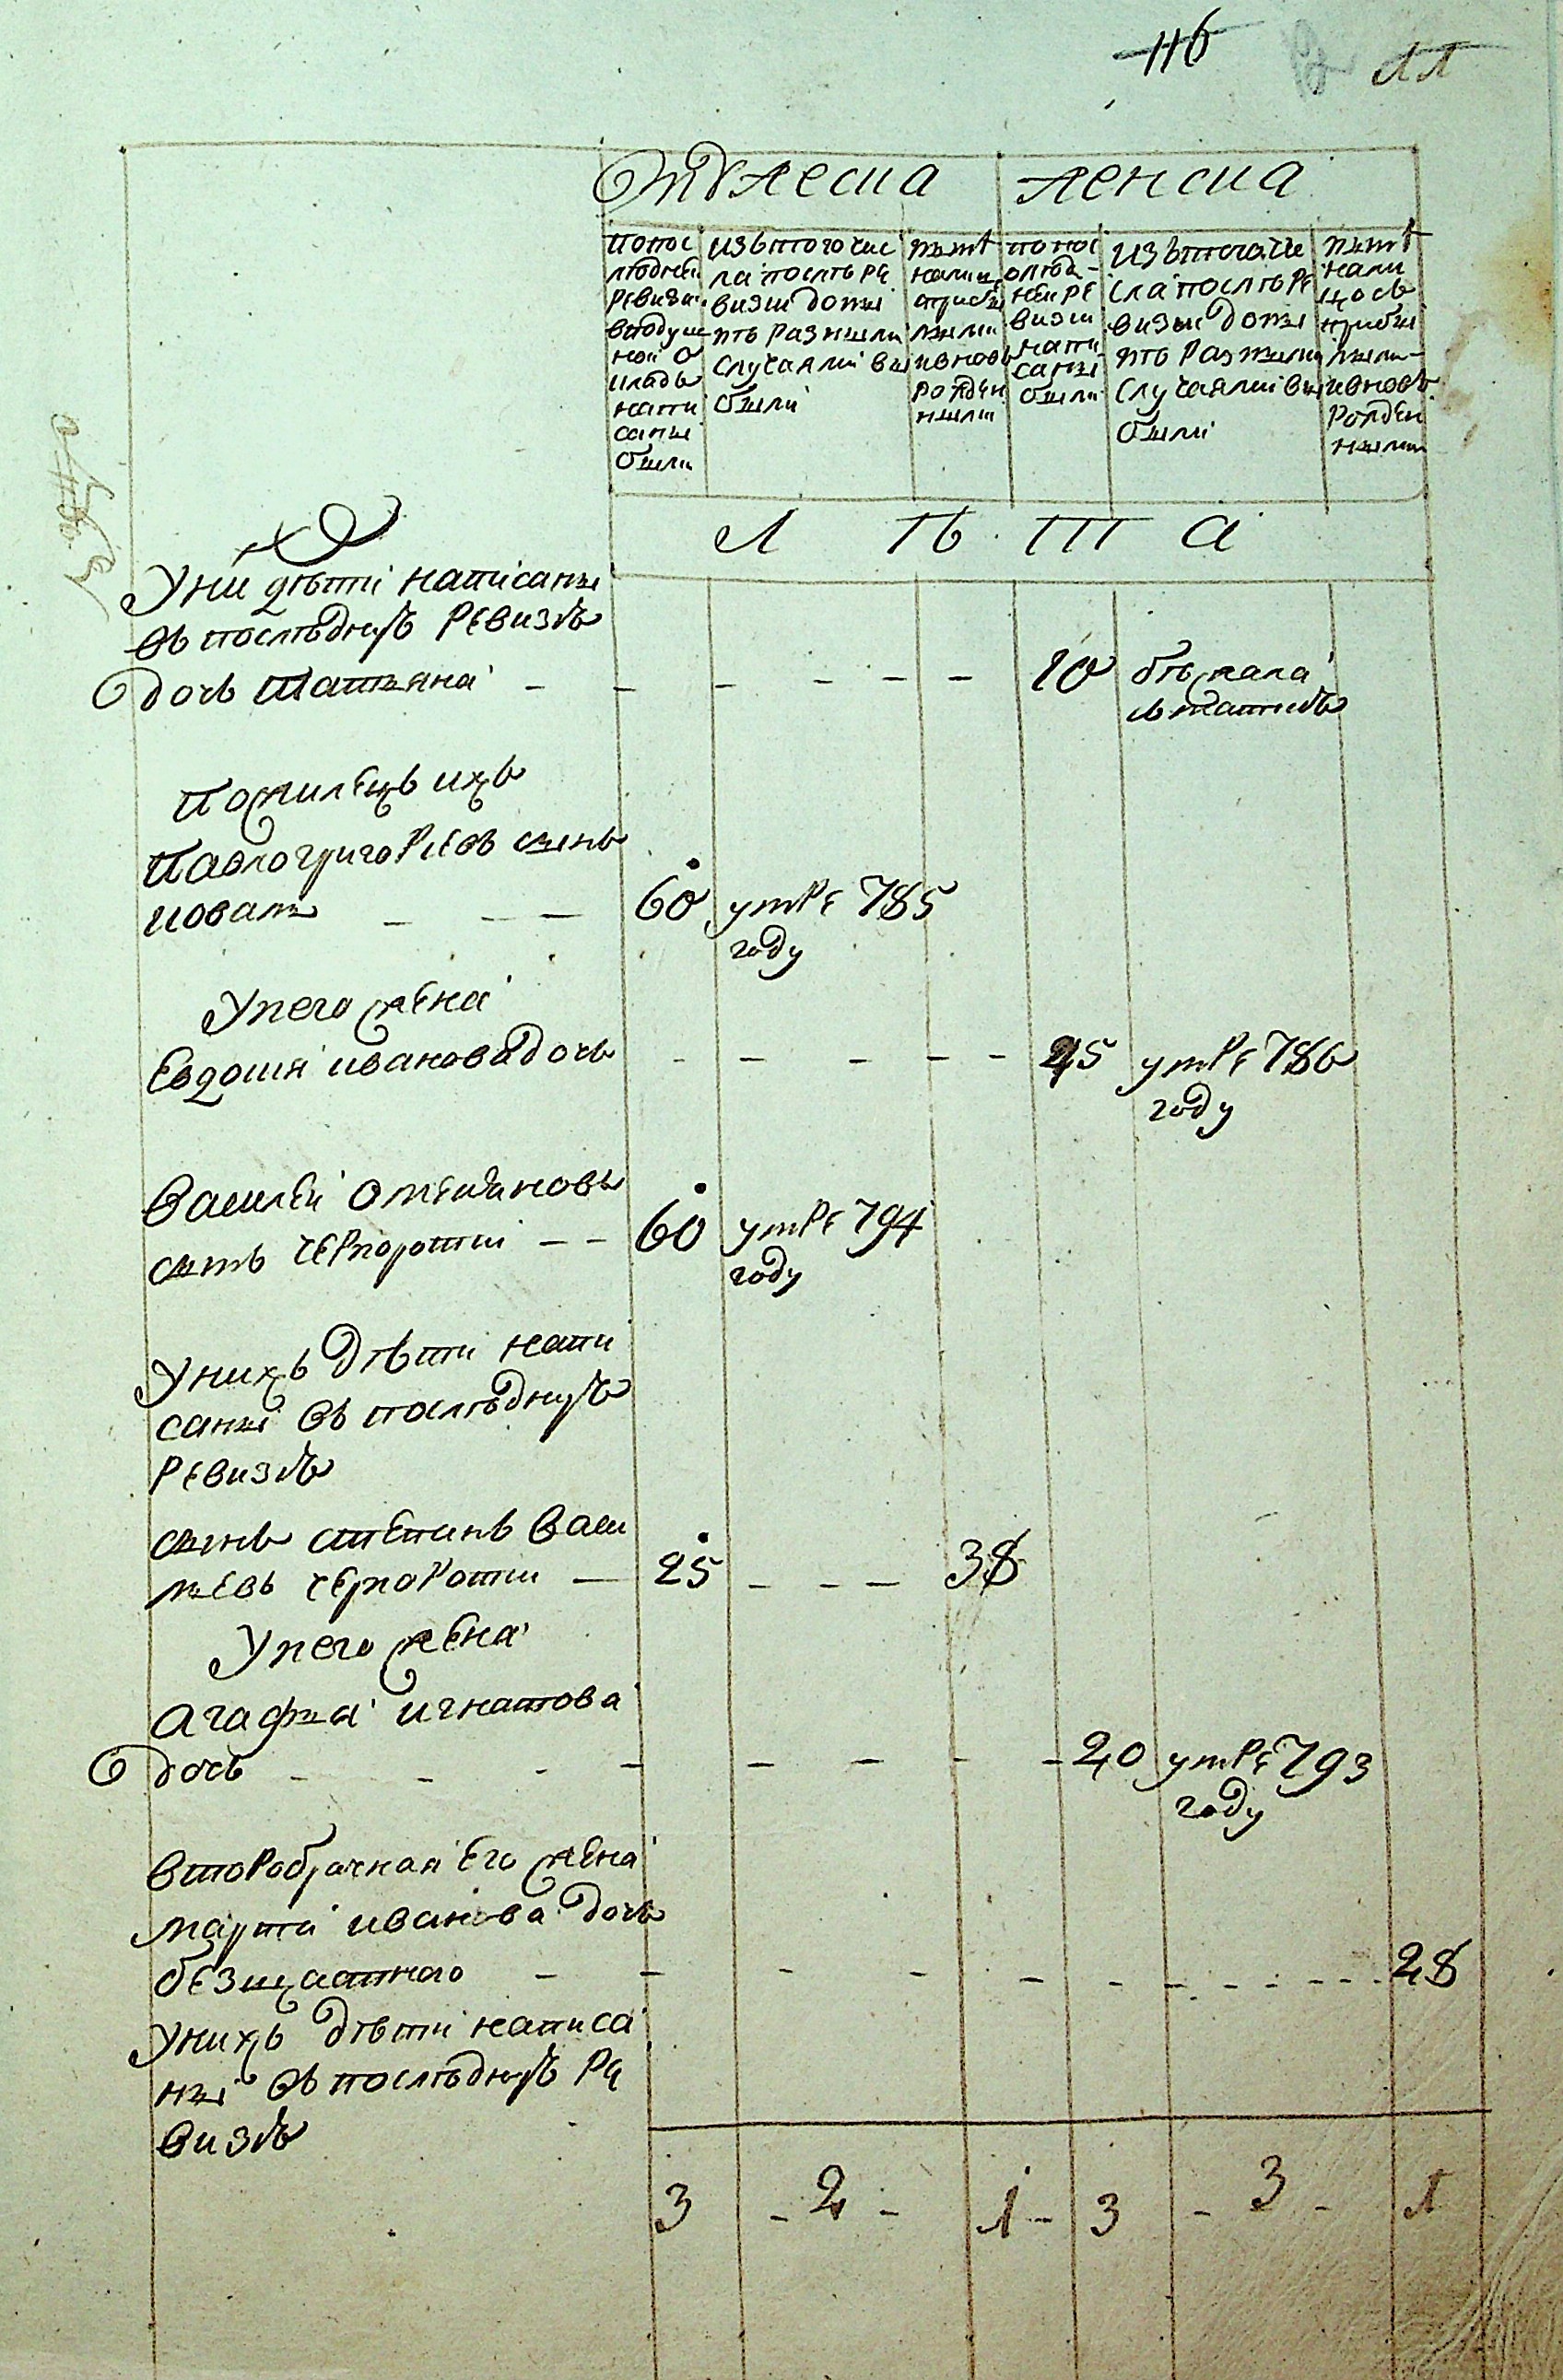 116 11
Мужеска женска
по пос
лѣдней
ревизи
в подуш
ной о
кладъ
напи
саны
были
изъ того чис
ла послѣ ре
визии до ны
нѣ разными
случаями вы
были
ныне
ными
и вновь
рожден
ными
по пос
лѣд-
ней ре
визии
напи
саны
были
изъ того чи
сла послѣ ре
визыи до ны
нѣ разными
случаями вы
были
ныне
нали
цось
прибы
лыми
и вновь
рожден
ными
Л ѣ т а
У ни дѣти написаны
въ послѣднуѣ ревизѣ
дочь татьяна - - - - - - 10 бѣжала
Пожилецъ ихъ
Павло григориевъ сынъ
коваль - - - 60 утре 785
году
У него жена
Евдокия иванова дочь - - - - - 45 утре 786
году
Василей омельяновъ
сынъ черноротки - - 60 утре 794
году
У нихъ дѣти напи
саны въ послѣднуѣ
ревизѣ
сынъ степанъ васи
льевъ черноротки — 25 - - - 38
У него жена
Агафья игнатова
дочь - - - - - - - - 20 утре 793
году
второбрачная его жена
марта иванова дочь
безщастного - - - - - - - - - - - - 28
У нихъ дѣти написа
ны въ послѣднуѣ ре
визѣ
3 - 2 - 1 - 3 - 3 - 1